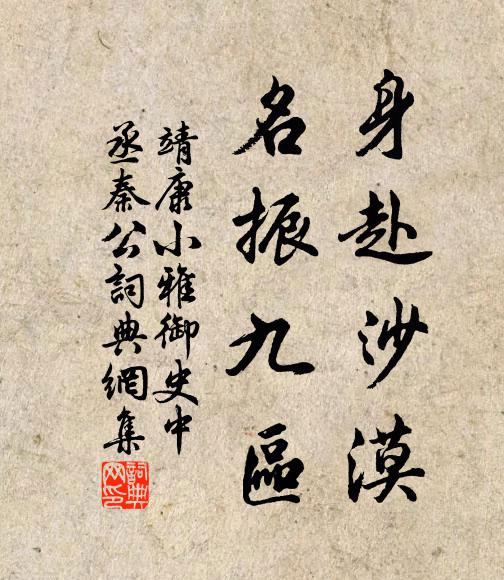 身赴沙漠
名振九區
靖康小雅御史中
丞秦公詞典網集
詞典
网印